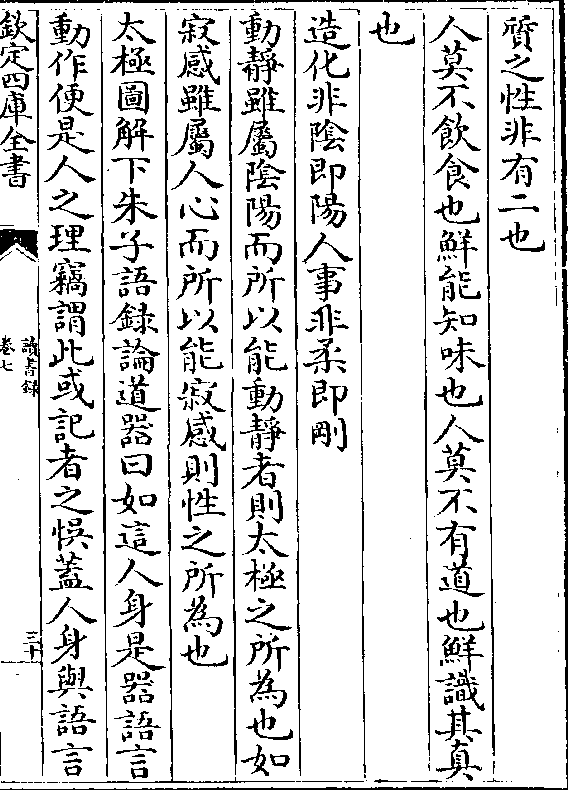 質之性非有二也
人莫不飲食也鮮能知味也人莫不有道也鮮識其真
也
造化非陰即陽人事非柔即剛
動靜雖屬陰陽而所以能動靜者則太極之所為也如
寂感雖屬人心而所以能寂感則性之所為也
太極圖解下朱子語錄論道器曰如這人身是器語言
動作便是人之理竊謂此或記者之悮蓋人身與語言
欽定四庫全書
讀書録
卷七
三十